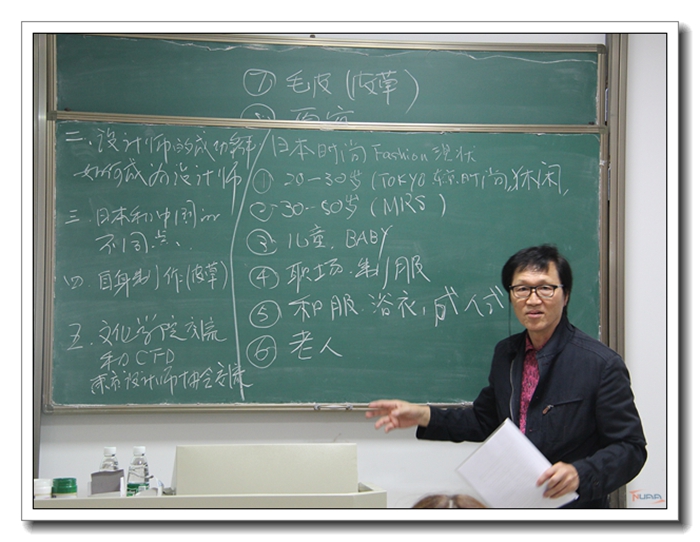 ⑦ 毛皮(皮草)
二.设计师的成功条件
如何成为设计师
三.日本和中国的
不同点.
四 自身制作(皮草)
五.文化学院交流
和CTD
东京设计师协会交流
日本时尚 Fashion 现状
① 20-30岁(TOKYO.东京.时尚,休闲,
② 30-50岁(MRS)
③ 儿童. BABY
④ 职场.制服
⑤ 和服.浴衣,成人式
⑥ 老人